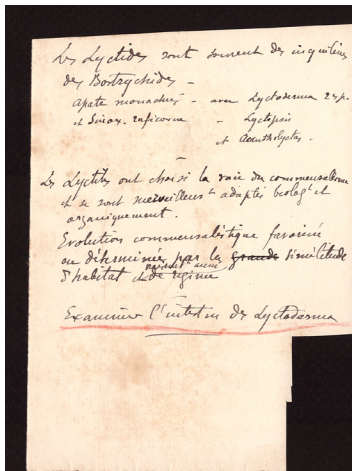 Les Lyctides sont souvent des inquilins
des Bostrychides -
Apate monachus - avec Lyctoderma 2 sp.
et Sinox. ruficorne - Lyctopsis
et Acantholyctus.
-
Les Lyctides ont choisi la voie du commensalisme
et se sont merveilleusᵗ adaptés biologᵗ et
organiquement.
Evolution commensalistique favorisée
ou déterminée par la grande similitude
d'habitat et de régime
Examiner l'intestin des Lyctoderma